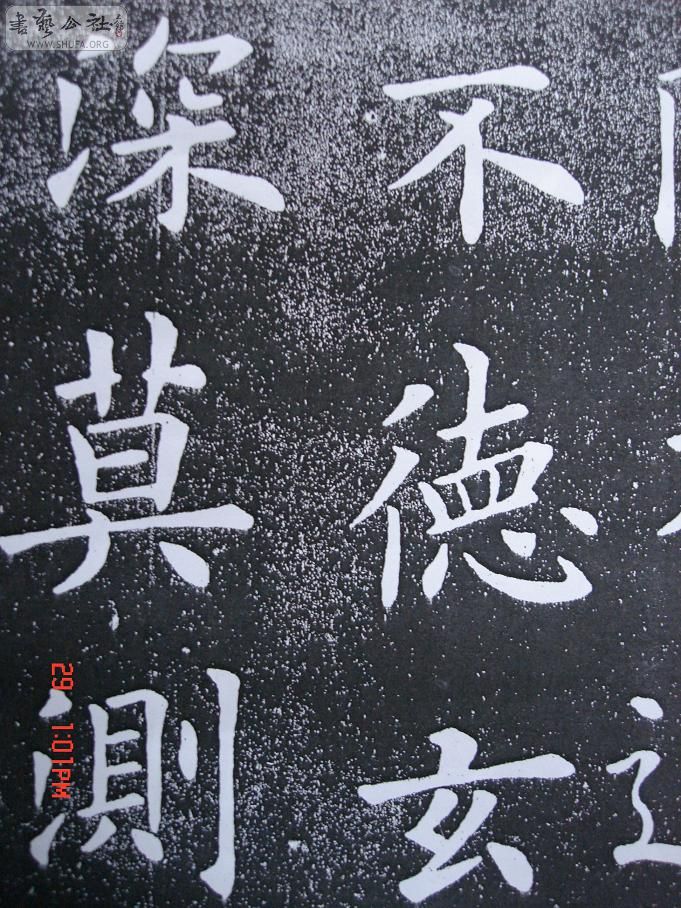 不德玄
深莫測
書藝公社
WWW.SHUFA.ORG
29 1:01PM